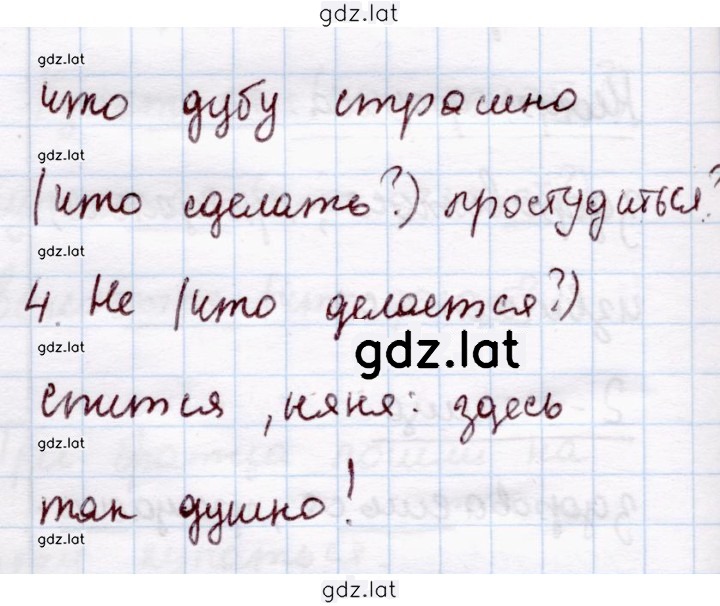 gdz.lat
gdz.lat
что дубу страшно
gdz.lat
(что сделать?) простудиться?
gdz.lat
4. Не (что делается?)
gdz.lat
gdz.lat
спится, няня: здесь
gdz.lat
так душно!
gdz.lat
gdz.lat